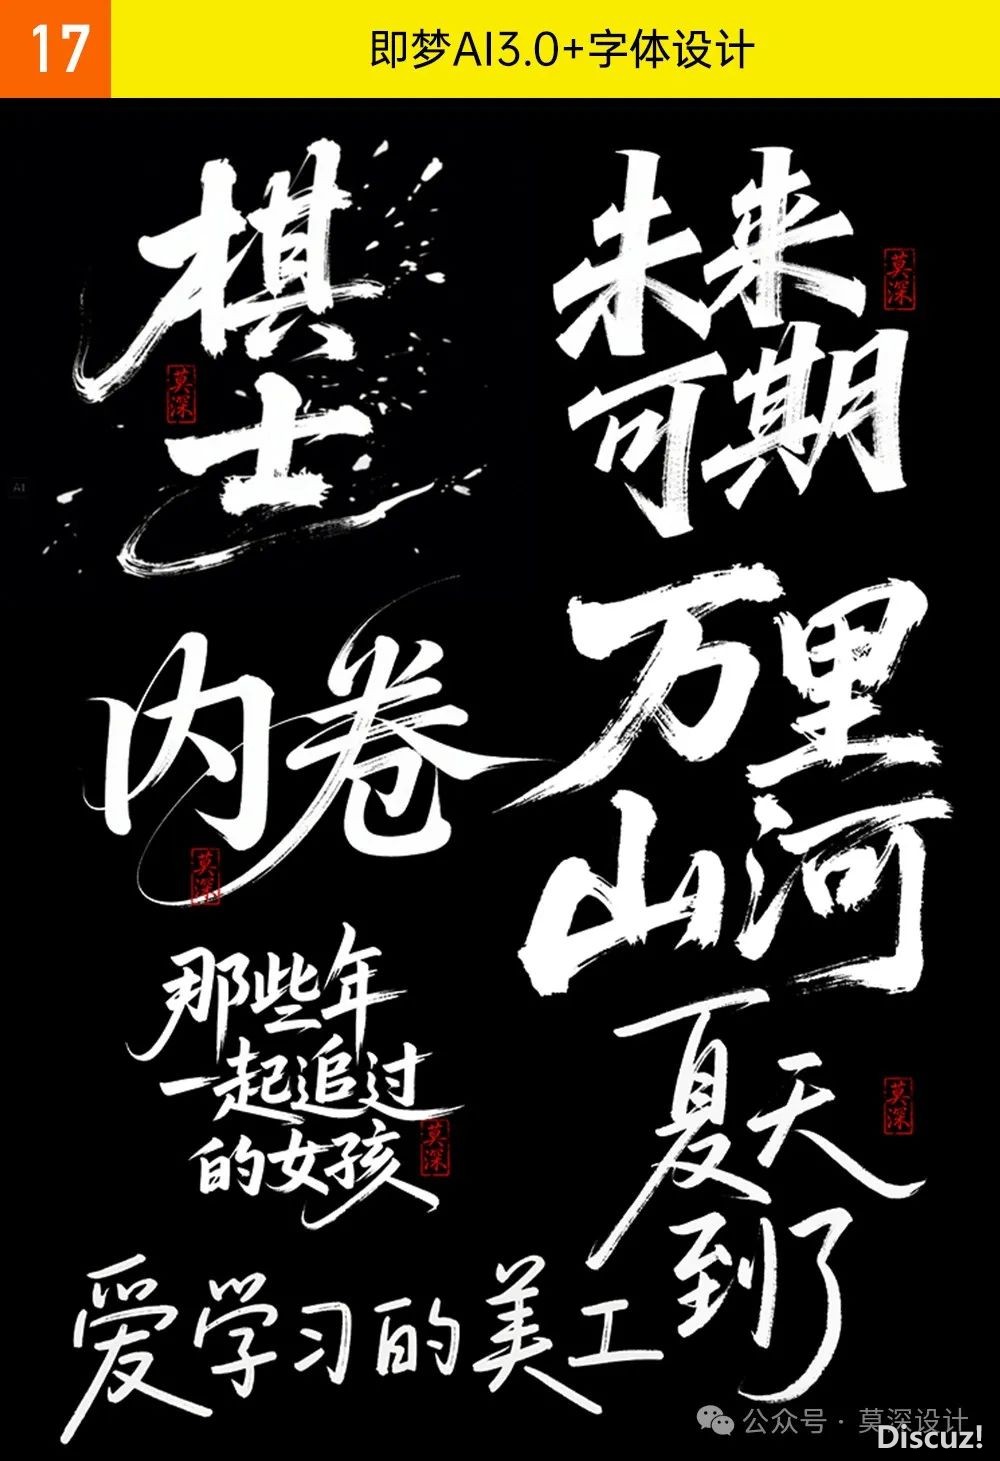 17
即梦AI3.0+字体设计
棋
士
莫深
未来
可期
莫深
内卷
莫深
万里
山河
那些年
一起追过
的女孩
莫深
夏天
到了
莫深
爱学习的美工
公众号·莫深设计
Discuz!
AI